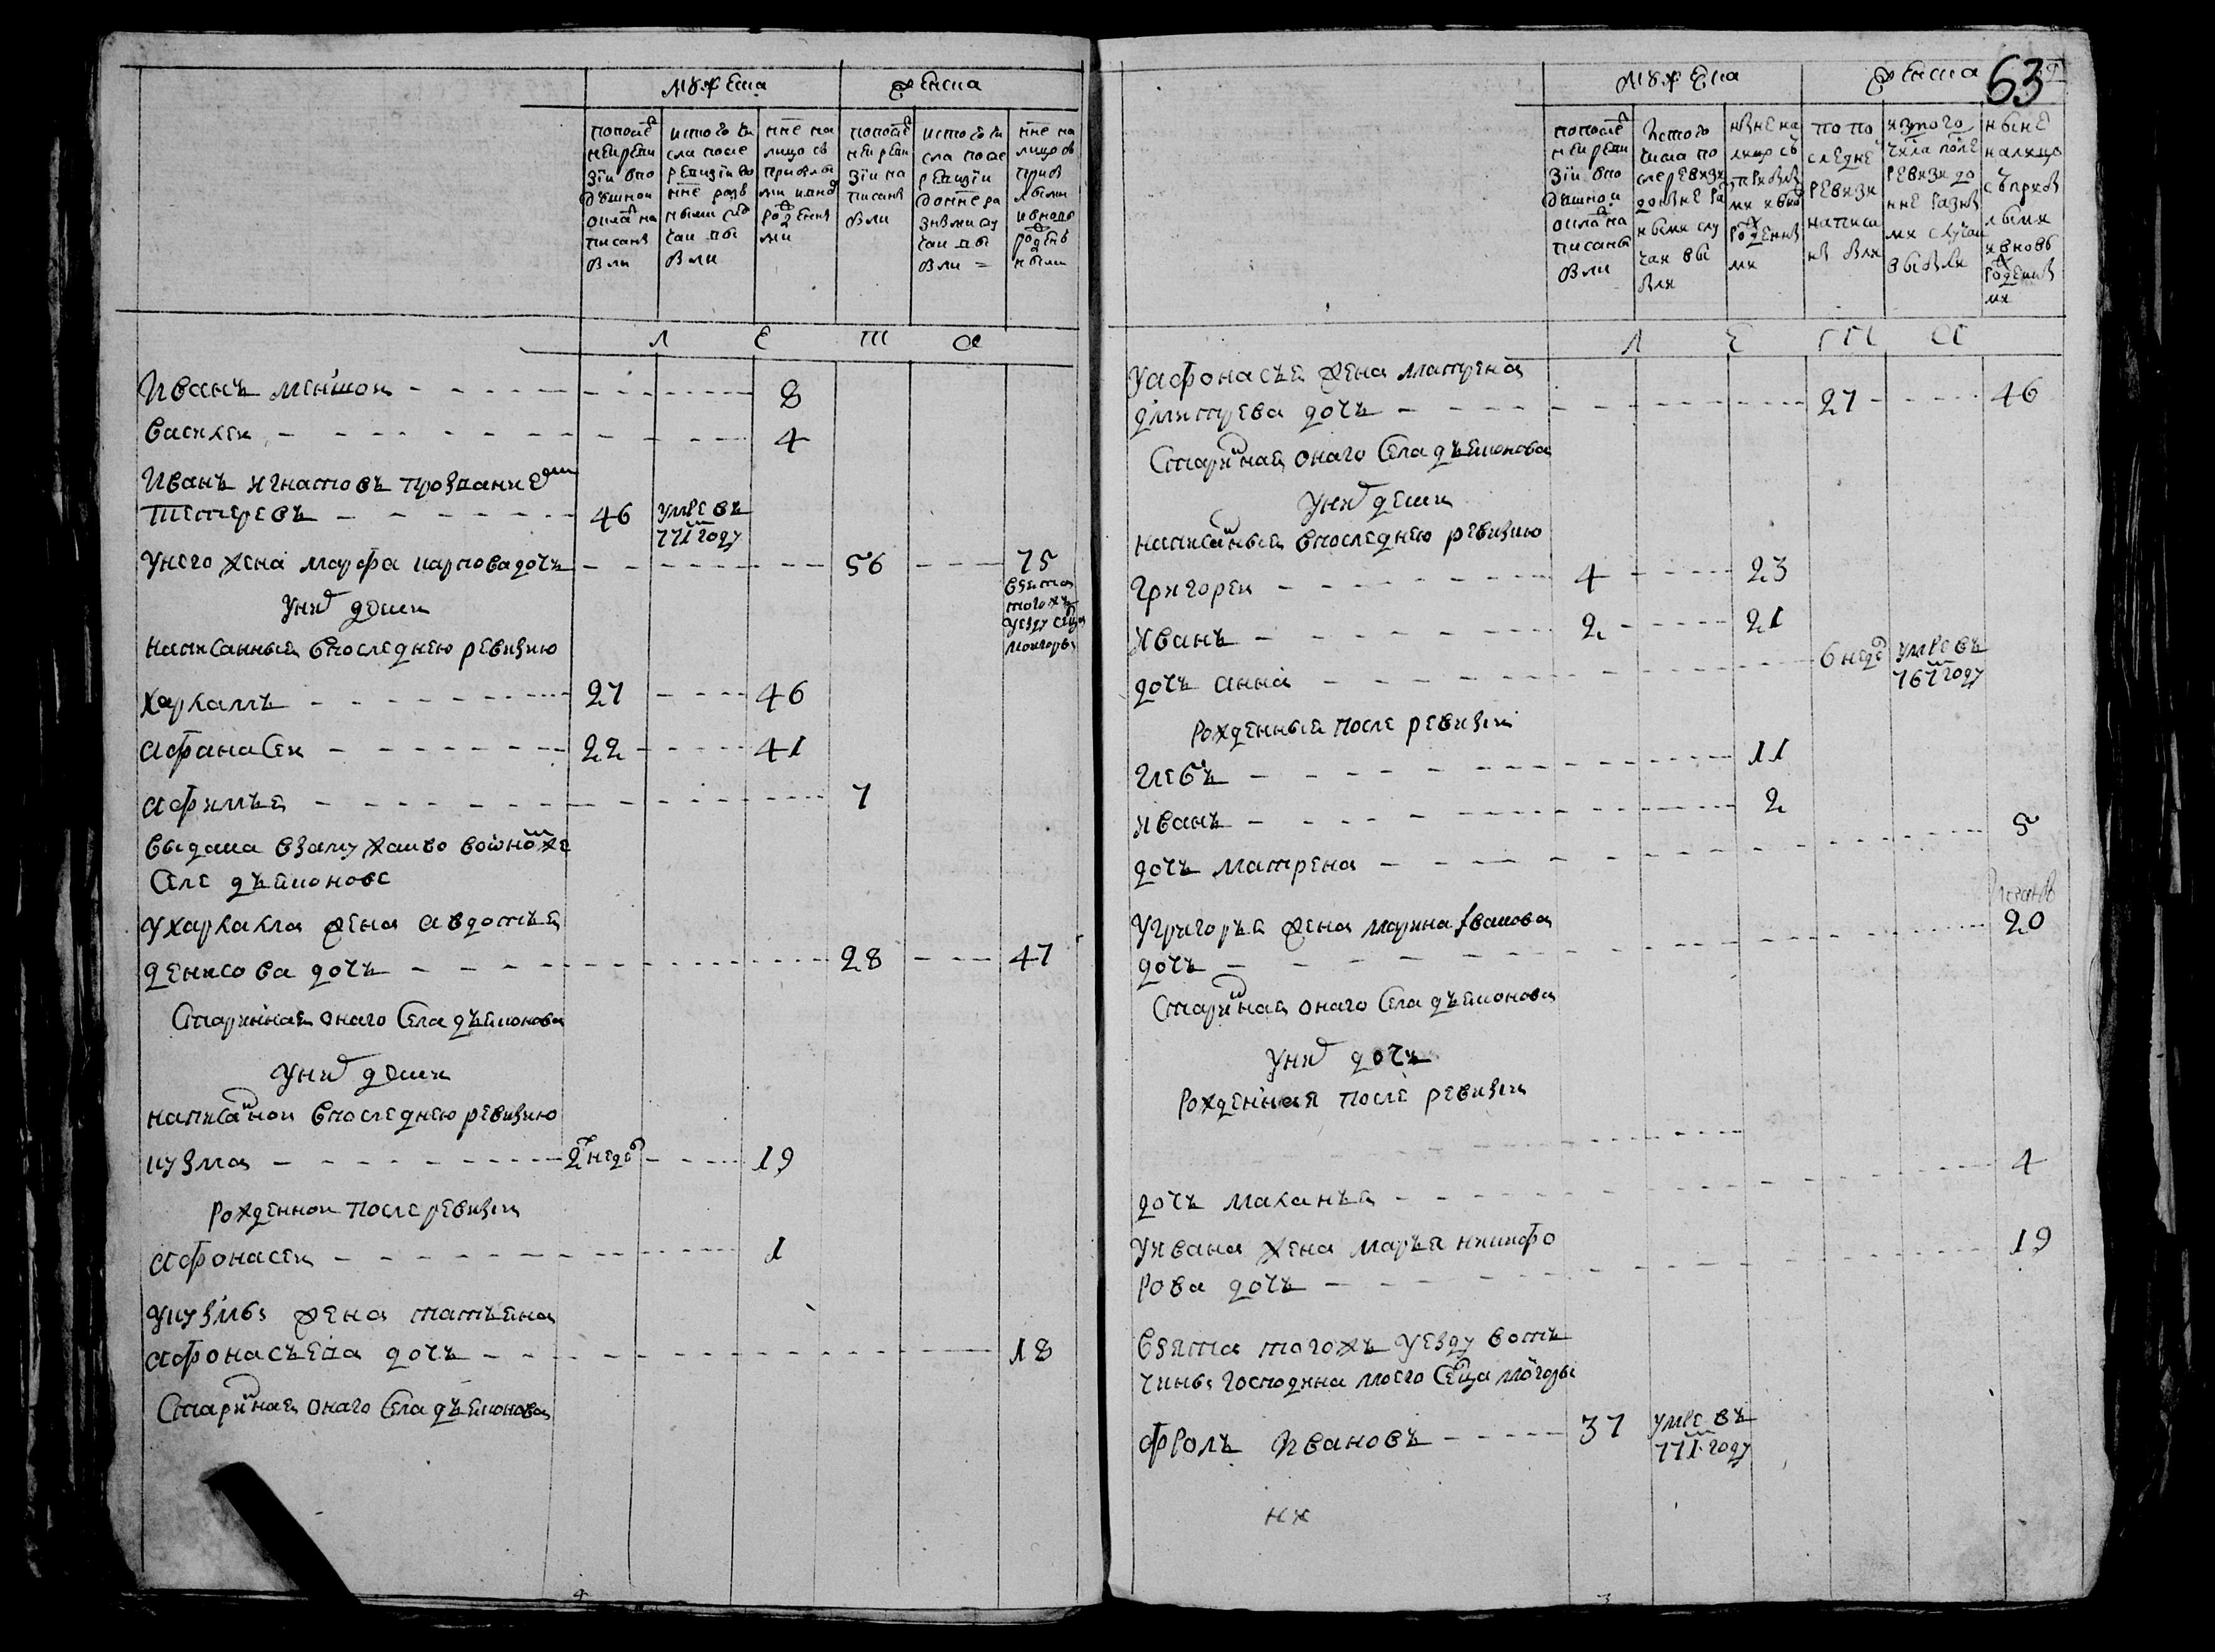 мужеска
женска
попосле
ней реви
зiи впо
душной
окла на
писаны
были
ис того чи
сла после
ревизiи до
нне разн
ными слу
чаи вы
были
нне на
лицо съ
прибылы
ми и внов
рожены
ми
попосле
ней реви
зiи на
писаны
были
ис того чи
сла после
ревизiи
до нне ра
зными слу
чаи вы
были
нне на
лицо съ
приб
лыми
и вновь
рожен
ными
Л Е Т А
Иванъ меншой 8
Василеи 4
Иванъ игнатовъ прозванием
Тетеревъ 46 умре въ
771м году
унего жена марфа карпова дочь 56 75
взята
того жъ
уезду сельца
Уних дети
написанныя впоследнею ревизию
харламъ 27 46
афанасеи 22 41
афимья 7
выдана взамужство вонномже
селе дьяконове
ухарлама жена авдотья
денисова дочь 28 47
Старинная онаго села дьяконова
Уних дети
написаной впоследнею ревизию
кузма 2 недо 19
рожденнои после ревизiи
афонасеи 1
укузмы жена татьяна
афонасьева дочь 18
Стариная онаго села дьяконова
63
мужеска
женска
попосле
ней реви
зiи впо
душнои
окла на
писаны
были
Истого
числа по
сле ревизи
доныне ра
ными слу
чаи вы
были
ныне на
лицо съ
прибылы
ми и внов
рожденны
ми
по по
следне
ревизи
написа
ны были
изтого
числа после
ревизи до
нне разны
ми случаи
выбыли
ныне
налицо
съ приб
лыми
и вновь
рожены
ми
Л Е Т А
уафонасья жена матрена
дмитрева дочь 27 46
Стариная онаго села дьяконова
Уних дети
написаныя впоследнею ревизию
Григореи 4 23
Иванъ 2 21
дочь анна 6 недо умре въ
767м году
Рожденныя после ревизiи
глебъ 11
Иванъ 2
дочь матрена 5
угригорья жена марина Iванова
дочь 20
Стариная онаго села дьяконова
Уних дочь
Рожденная после ревизiи
дочь маланья 4
уивана жена марья никифо
рова дочь 19
Взята того жъ уезду вотъ
чины господина моего селца
фролъ Ивановъ 37 умре въ
771м году
их